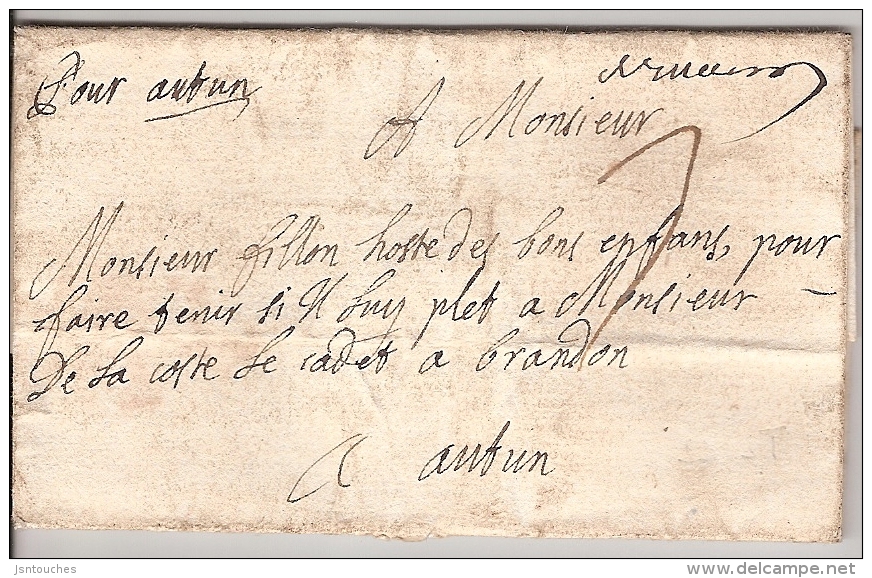 Pour autun
A Monsieur
Monsieur fillon hoste des bons enfans, pour
faire tenir si Il luy plet a Monsieur -
De la coste le cadet a brandon
A autun
jsntouches
www.delcampe.net